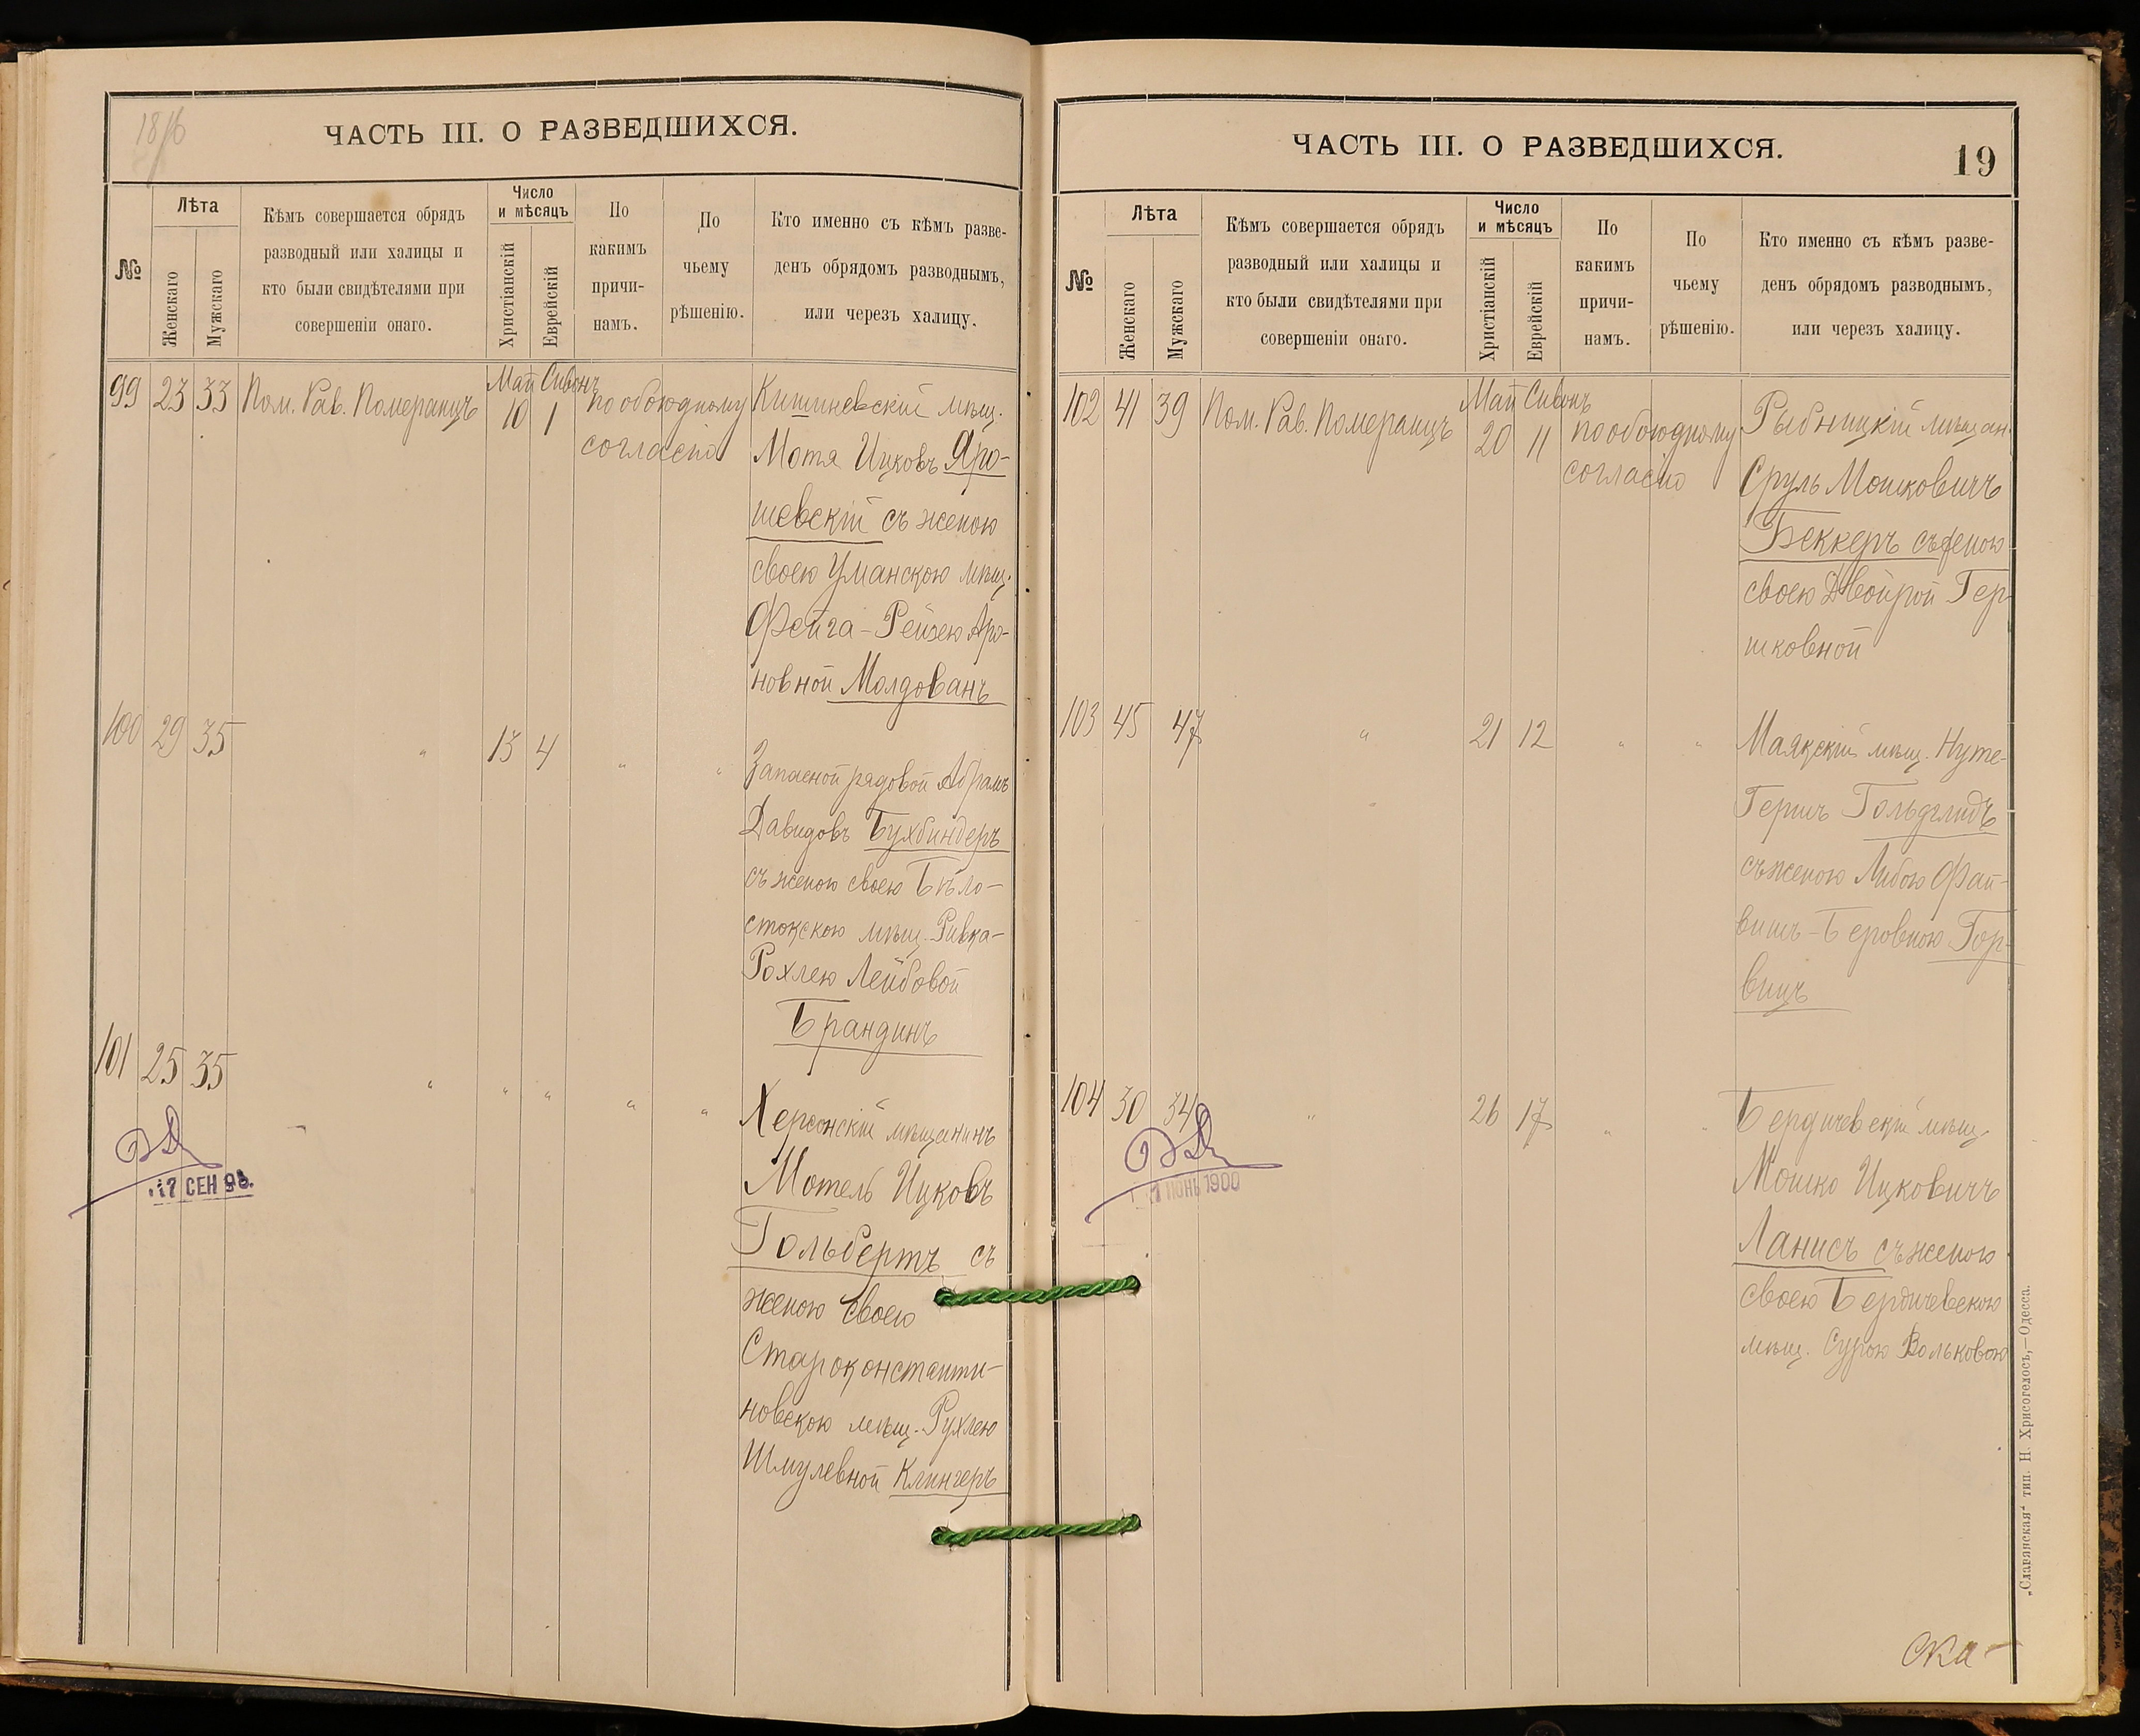 ЧАСТЬ III. О РАЗВЕДШИХСЯ.
№
Лѣта
Женскаго
Мужскаго
Кѣмъ совершается обрядъ
разводный или халицы и
кто были свидѣтелями при
совершеніи онаго.
Число
и мѣсяцъ
Христіанскій
Еврейскій
По
какимъ
причи-
намъ.
По
чьему
рѣшенію.
Кто именно съ кѣмъ разве-
денъ обрядомъ разводнымъ,
или черезъ халицу.
99 23 33 Пом. Рав. Померанцъ Май 10 Сивонъ 1 по обоюдному
согласію
Кишиневскій мѣщ.
Мотя Ицковъ Яро-
шевскій съ женою
своею Уманскою мѣщ.
Фейга-Рейзею Аро-
новной Молдованъ
100 29 35 " 13 4 " "
Запасной рядовой Абрамъ
Давидовъ Бухбиндеръ
съ женою своею Бѣло-
стокскою мѣщ. Ривка-
Рохлею Лейбовой
Брандинъ
101 25 35 " " " " "
Херсонскій мѣщанинъ
Мотель Ицковъ
Гольбертъ съ
женою своею
Староконстанти-
новскою мѣщ. Рухлею
Шмулевной Клингеръ
17 СЕН 98.
ЧАСТЬ III. О РАЗВЕДШИХСЯ.
19
№
Лѣта
Женскаго
Мужскаго
Кѣмъ совершается обрядъ
разводный или халицы и
кто были свидѣтелями при
совершеніи онаго.
Число
и мѣсяцъ
Христіанскій
Еврейскій
По
какимъ
причи-
намъ.
По
чьему
рѣшенію.
Кто именно съ кѣмъ разве-
денъ обрядомъ разводнымъ,
или черезъ халицу.
102 41 39 Пом. Рав. Померанцъ Май 20 Сивонъ 11 по обоюдному
согласію
Рыбницкій мѣщан.
Сруль Мошковичъ
Беккеръ съ женою
своею Двойрой Гер-
шковной
103 45 47 " 21 12 " "
Маякскій мѣщ. Нуте-
Гершъ Гольдглидъ
съ женою Либою Фай-
вишъ-Беровною Гор-
вицъ
104 30 34 " 26 17 " "
Бердичевскій мѣщ.
Мошко Ицковичъ
Ланисъ съ женою
своею Бердичевскою
мѣщ. Сурою Вольковою
ІЮНЬ 1900
Ска-
„Славянская“ тип. Н. Хрисогелосъ,—Одесса.